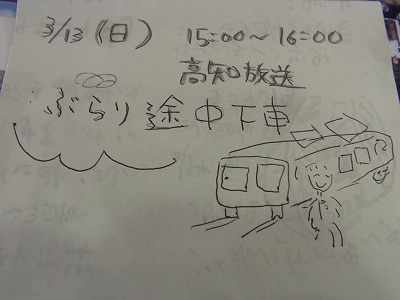 3/13(日) 15:00~16:00
高知放送
ぶらり途中下車